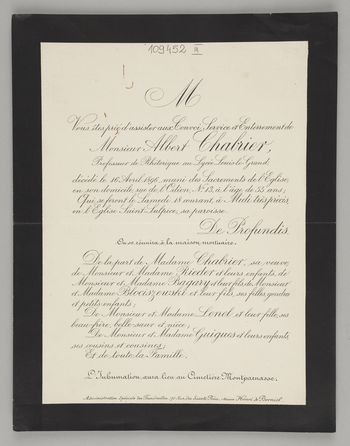 109452
M
Vous êtes prié d'assister aux Convoi, Service et Enterrement de
Monsieur Albert Chabrier,
Professeur de Rhétorique au Lycée Louis-le-Grand,
décédé le 16 Avril 1896, muni des Sacrements de l'Eglise,
en son domicile, rue de l'Odéon, N° 13, à l'âge de 55 ans;
Qui se feront le Samedi 18 courant, à Midi très précis,
en l'Eglise Saint-Sulpice, sa paroisse.
De Profundis.
On se réunira à la maison mortuaire.
De la part de Madame Chabrier, sa veuve,
de Monsieur et Madame Rieder et leurs enfants, de
Monsieur et Madame Bagary et leur fils, de Monsieur
et Madame Blociszewski et leur fils, ses filles, gendres
et petits-enfants;
De Monsieur et Madame Lenel et leur fille, ses
beau-frère, belle-sœur et nièce;
De Monsieur et Madame Guigues et leurs enfants,
ses cousins et cousines;
Et de toute la Famille.
L'Inhumation aura lieu au Cimetière Montparnasse.
Administration Spéciale des Funérailles, Rue des Saints-Pères, Maison Henri de Borniol.